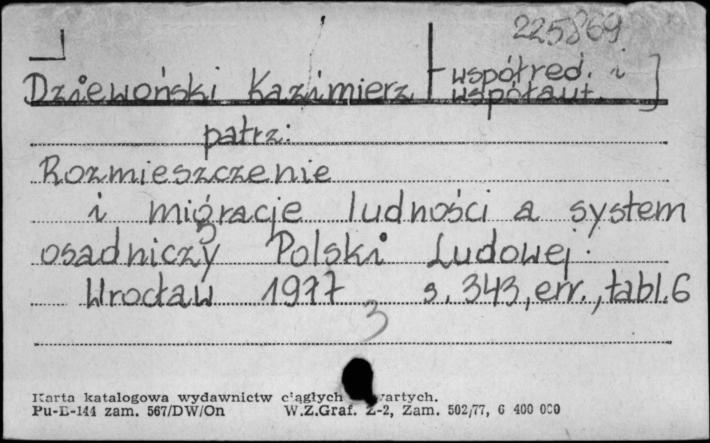 225869
Dziewoński Kazimierz [współred. i współaut.]
patrz:
Rozmieszczenie
i migracje ludności a system
osadniczy Polski Ludowej.
Wrocław 1977 s. 343, err., tabl. 6
3
Karta katalogowa wydawnictw ciągłych
Pu-E-144 zam. 567/DW/On W.Z.Graf. Z-2, Zam. 502/77, 6 400 000